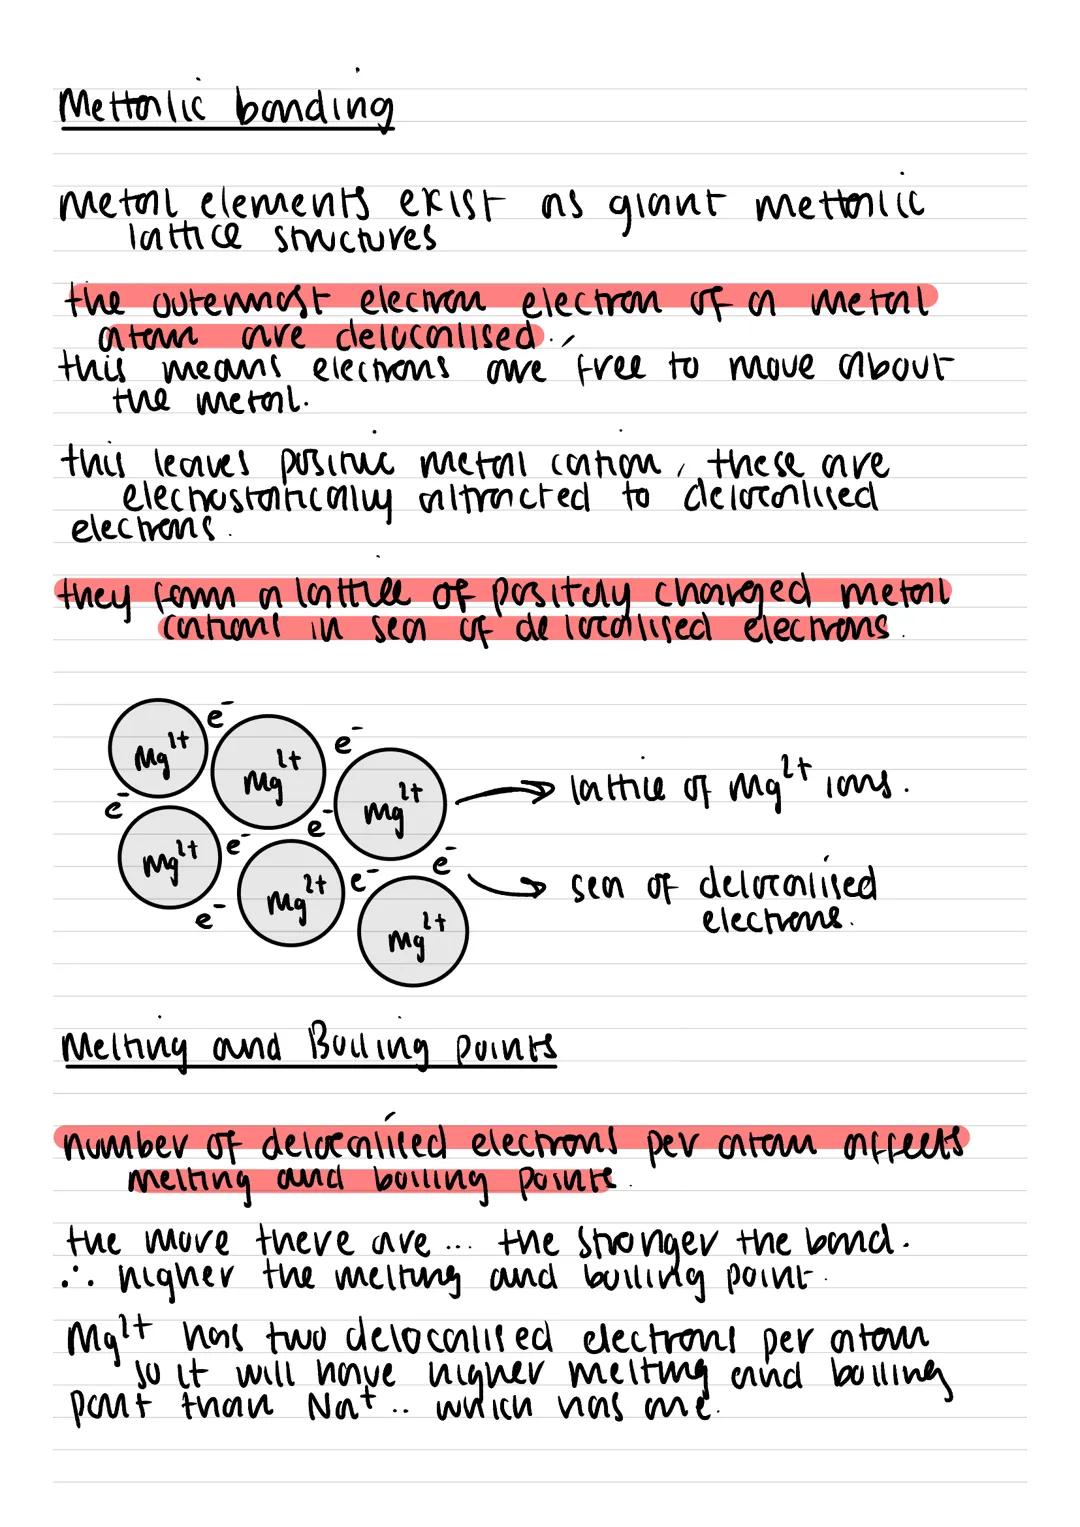 Mettalic bonding
metal elements exist as giant mettalic
lattice structures
the outermost electron electron of a metal
atom are delocalised.
this means electrons are free to move about
the metal.
this leaves positive metal cation, these are
electrostatically attracted to delocalised
electrons.
they form a lattice of positely charged metal
cations in sea of delocalised electrons.
e⁻
Mg²⁺ Mg²⁺ e⁻
Mg²⁺ → lattice of Mg²⁺ ions.
e⁻ e⁻
Mg²⁺ e⁻ Mg²⁺ e⁻ e⁻ → sea of delocalised
electrons.
e⁻ Mg²⁺
Melting and Boiling points
number of delocalised electrons per atom affects
melting and boiling points.
the more there are ... the stronger the bond.
∴ higher the melting and boiling point.
Mg²⁺ has two delocalised electrons per atom
so it will have higher melting and boiling
point than Na⁺ .. which has one.